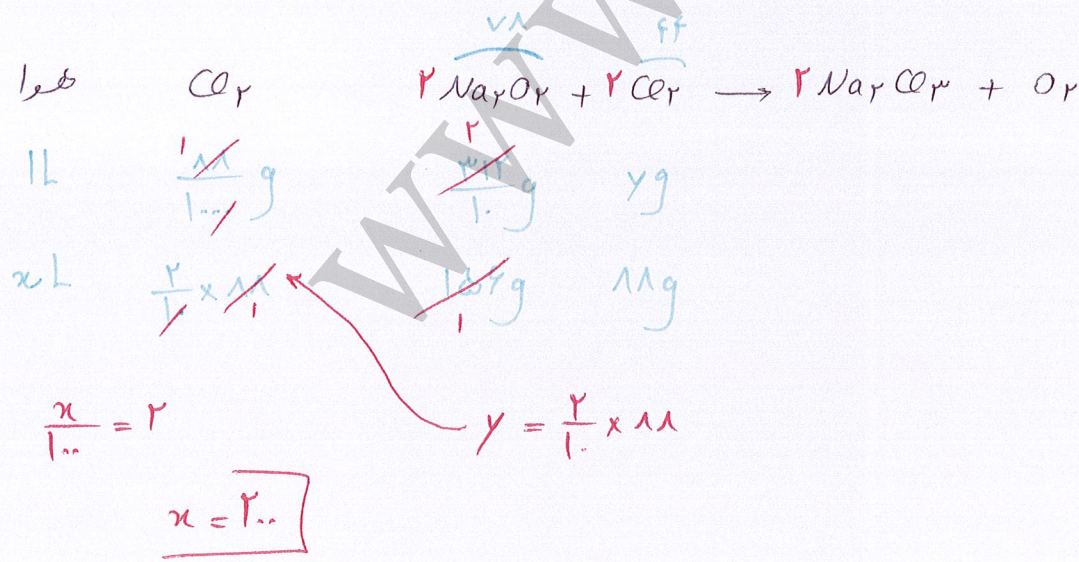 ۷۸ ۴۴
هوا CO۲ ۲Na۲O۲ + ۲CO۲ → ۲Na۲CO۳ + O۲
۱ ۲
۱L ۸۸/۱۰۰۰ g ۳۱۲/۱۰ g yg
xL ۲/۱۰ × ۸۸ ۱۵۶g ۸۸g
۱ ۱
x/۱۰۰ = ۲ y = ۲/۱۰ × ۸۸
x = ۲۰۰
WWW